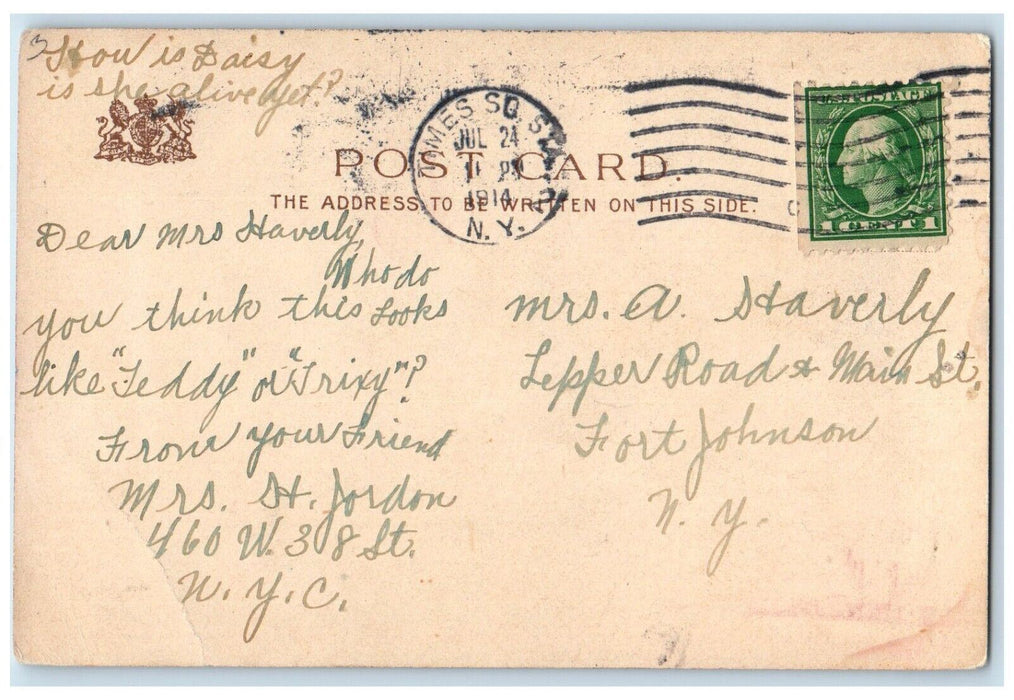 How is Daisy
is she alive yet?
TIMES SQ. STA.
JUL 24
11 PM
1914
N.Y.
U.S. POSTAGE
1 CENT 1
POST CARD.
THE ADDRESS TO BE WRITTEN ON THIS SIDE.
Dear Mrs Haverly,
Who do
you think this Looks
like "Teddy" or "Trixy"?
From your Friend
Mrs. H. Jordon
460 W. 38 St.
N. Y. C.
Mrs. A. Haverly
Lepper Road & Main St.
Fort Johnson
N. Y.